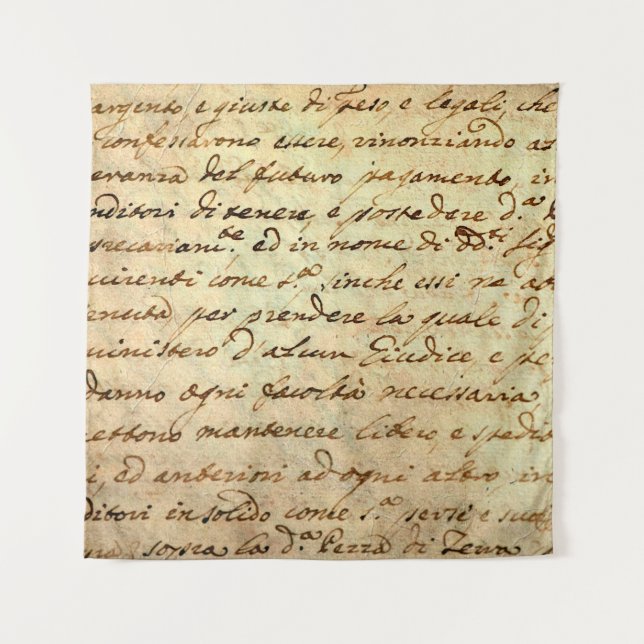 argento, e giuste di peso, e legali, che
confessarono essere, rinonziando a
eranza del futuro pagamento, in
nditori di tenere, e possedere d.ª
recariam.te ed in nome di dd.ti Sig
uirenti come s.ª, finche essi ne
enuta per prendere la quale di
ministero d'alcun Giudice, e pe
danno ogni facoltà necessaria,
ettono mantenere libero, e spedit
i, ed anteriori ad ogni altro, in
ditori in solido come s.ª per se e
sopra la d.ª Pezza di Terra